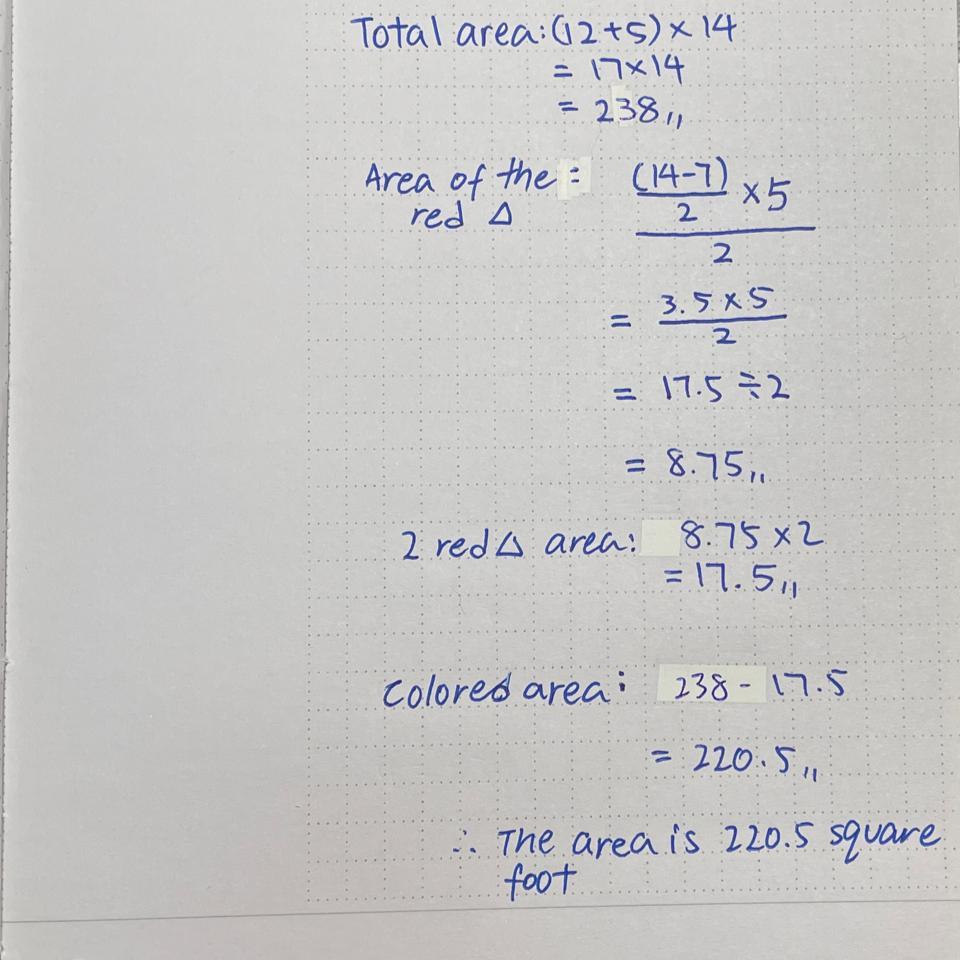 Total area: (12+5) × 14
= 17×14
= 238,,
Area of the :
red △
(14-7)
2
× 5
2
= 3.5 × 5
2
= 17.5 ÷ 2
= 8.75,,
2 red △ area: 8.75 × 2
= 17.5,,
Colored area: 238 - 17.5
= 220.5,,
∴ The area is 220.5 square
foot